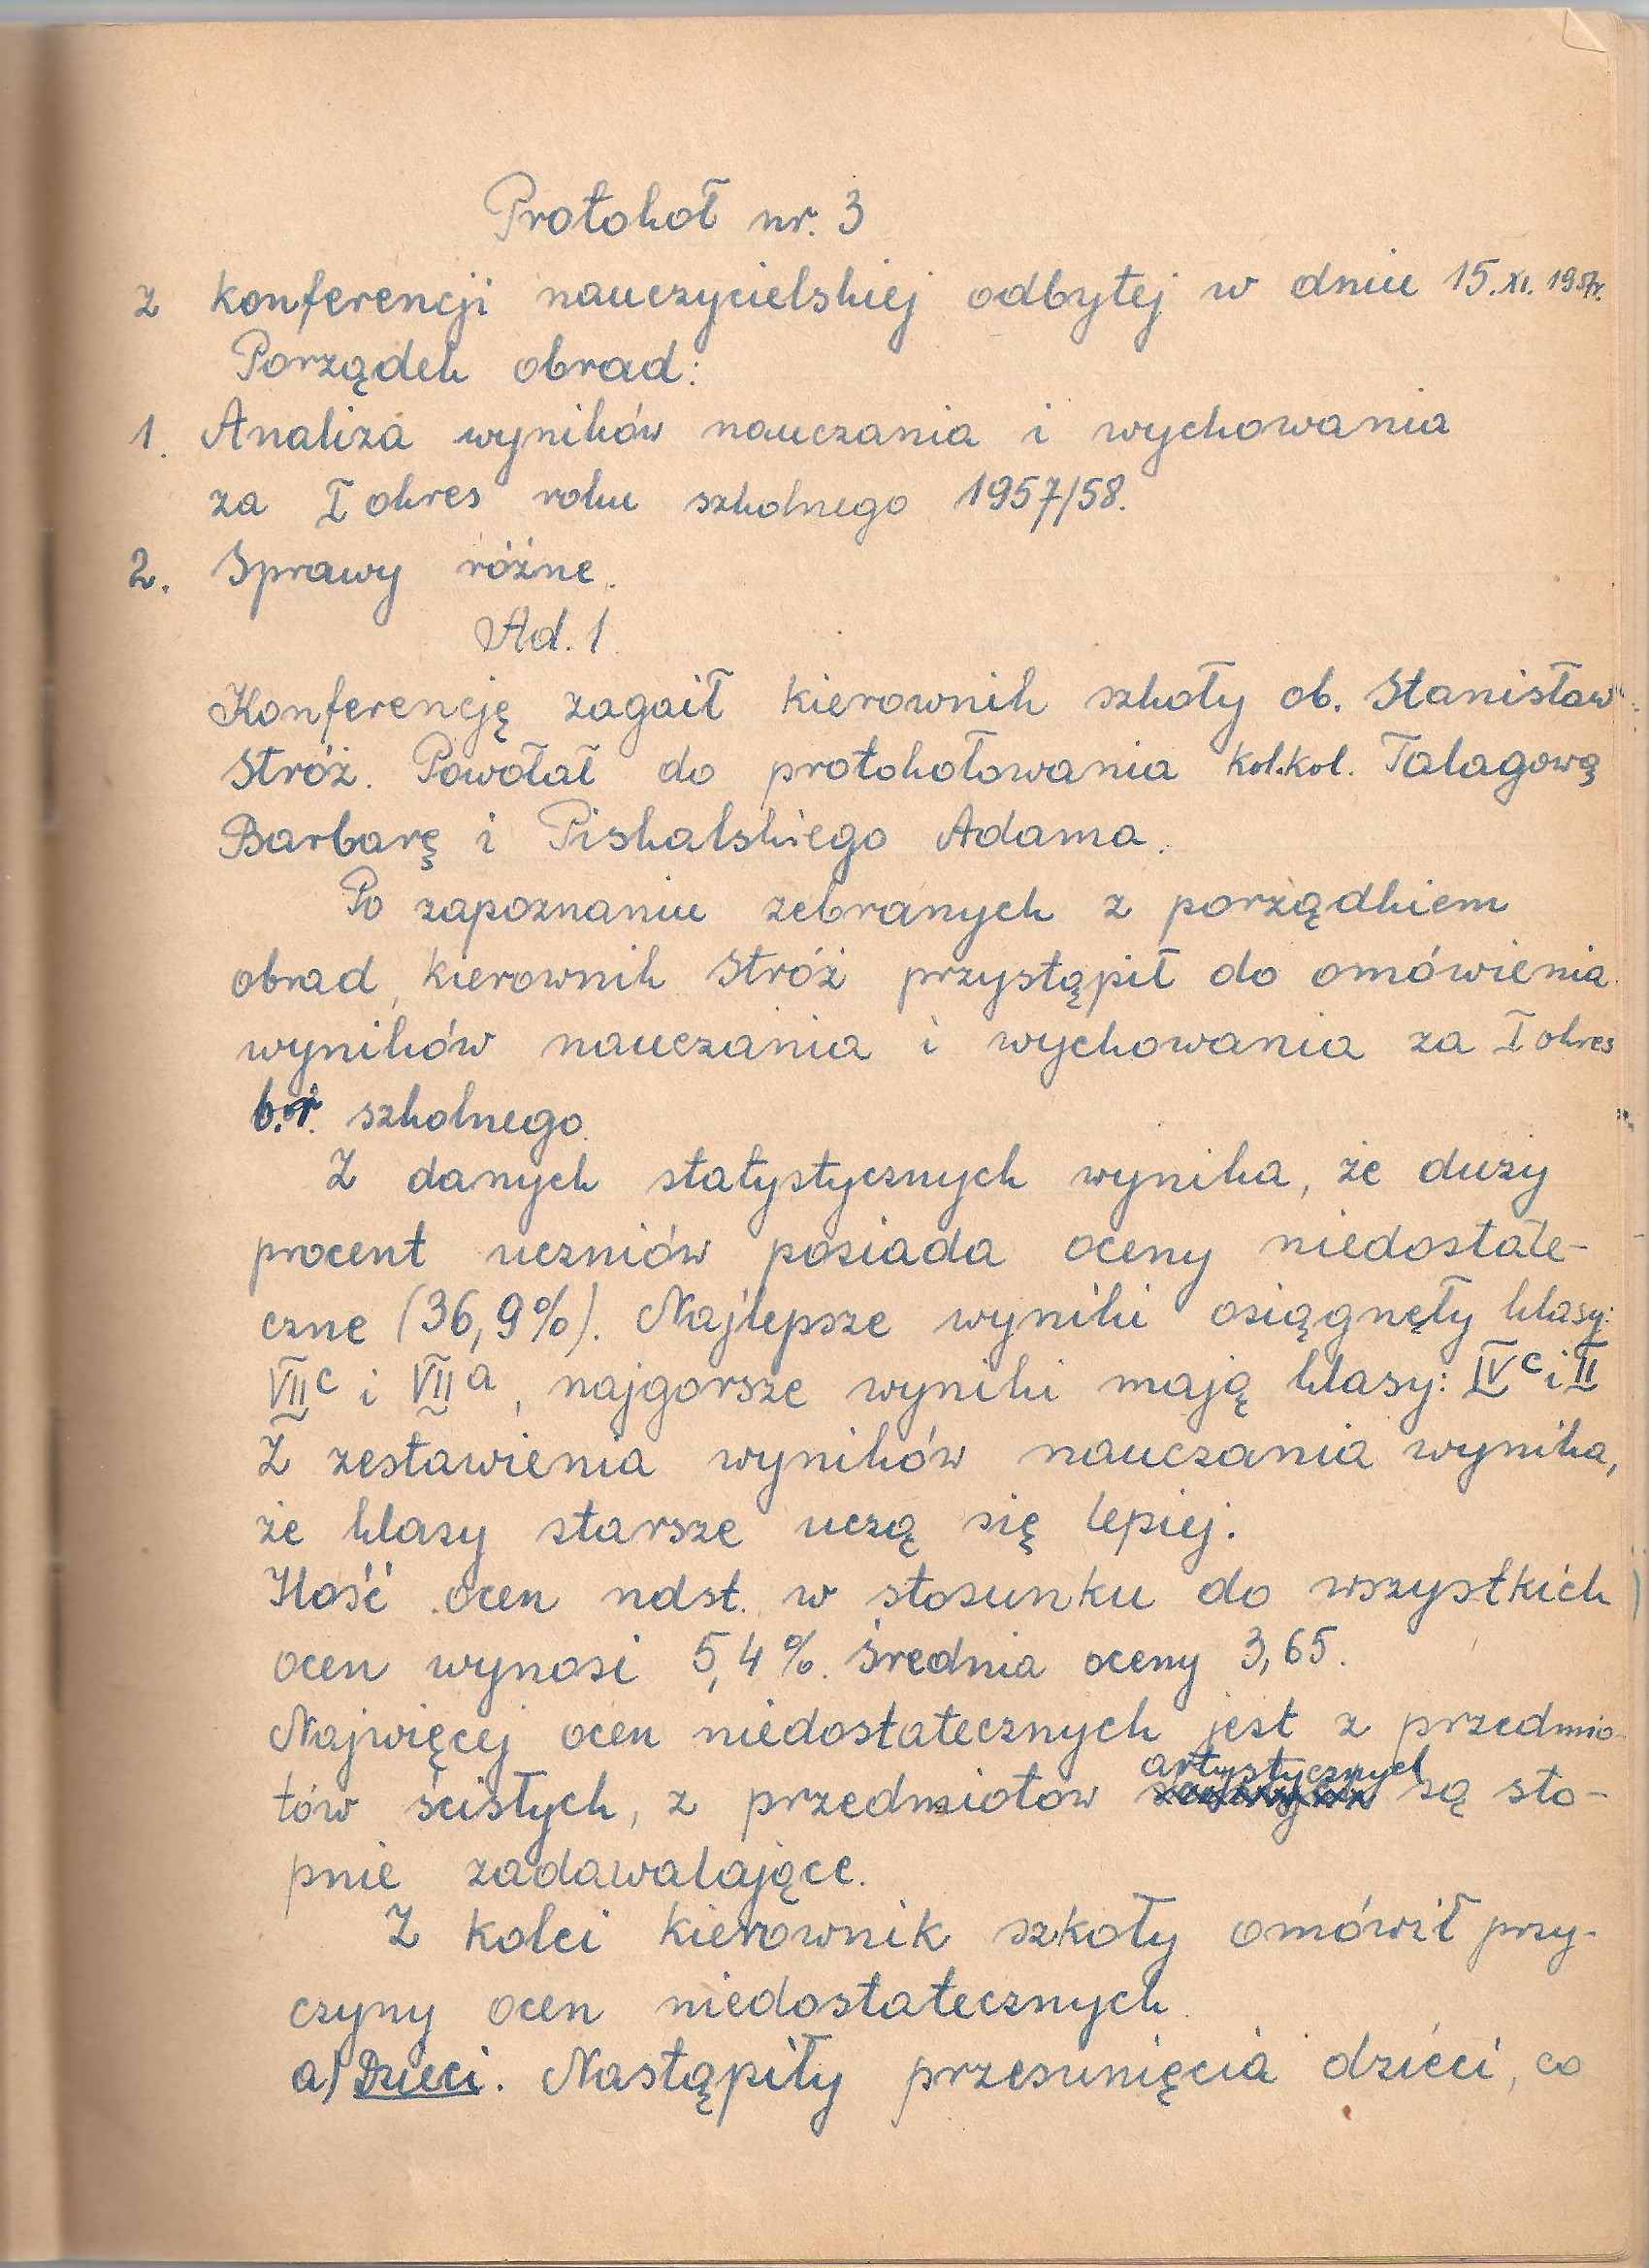 Protokół nr. 3
z konferencji nauczycielskiej odbytej w dniu 15.XI.1957r.
Porządek obrad:
1. Analiza wyników nauczania i wychowania
za I okres roku szkolnego 1957/58.
2. Sprawy różne.
Ad. 1.
Konferencję zagaił kierownik szkoły ob. Stanisław
Stróż. Powołał do protokołowania kol.kol. Talagową
Barbarę i Piskalskiego Adama.
Po zapoznaniu zebranych z porządkiem
obrad, kierownik Stróż przystąpił do omówienia
wyników nauczania i wychowania za I okres
b.r. szkolnego.
Z danych statystycznych wynika, że duży
procent uczniów posiada oceny niedostate-
czne (36,9%). Najlepsze wyniki osiągnęły klasy:
VIIc i VIIa, najgorsze wyniki mają klasy: IVc i II
Z zestawienia wyników nauczania wynika,
że klasy starsze uczą się lepiej.
Ilość ocen ndst. w stosunku do wszystkich
ocen wynosi 5,4%. Średnia oceny 3,65.
Najwięcej ocen niedostatecznych jest z przedmio-
tów ścisłych, z przedmiotów artystycznych są sto-
pnie zadawalające.
Z kolei kierownik szkoły omówił przy-
czyny ocen niedostatecznych.
a) Dzieci. Nastąpiły przesunięcia dzieci, co